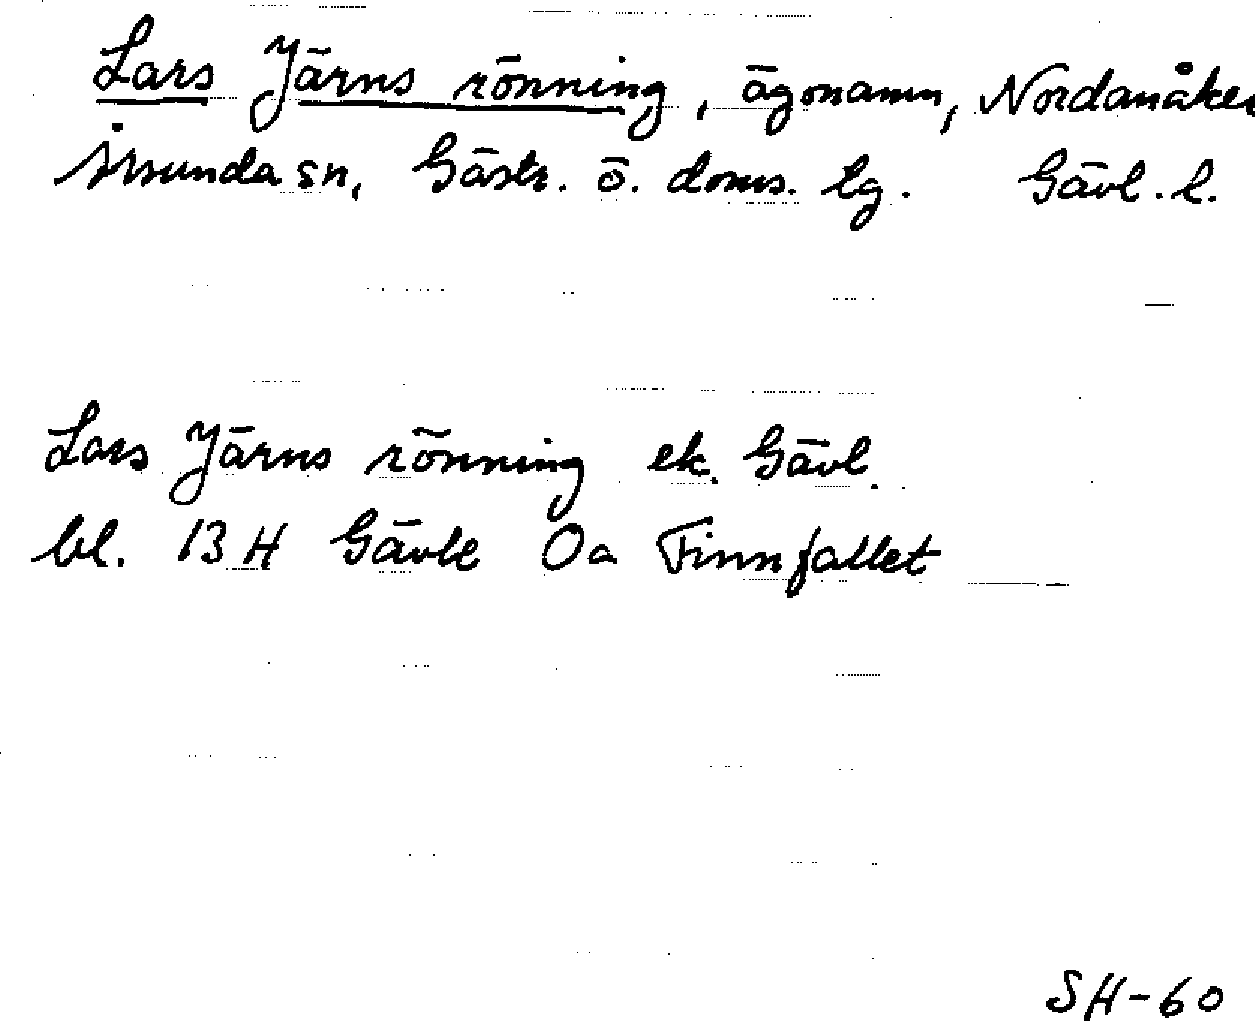 Lars Järns rönning, ägonamn, Nordanåker
Årsunda sn, Gästr. ö. doms. lg. Gävl. l.
Lars Järns rönning ek. Gävl.
bl. 13 H Gävle Oa Finnfallet
SH-60